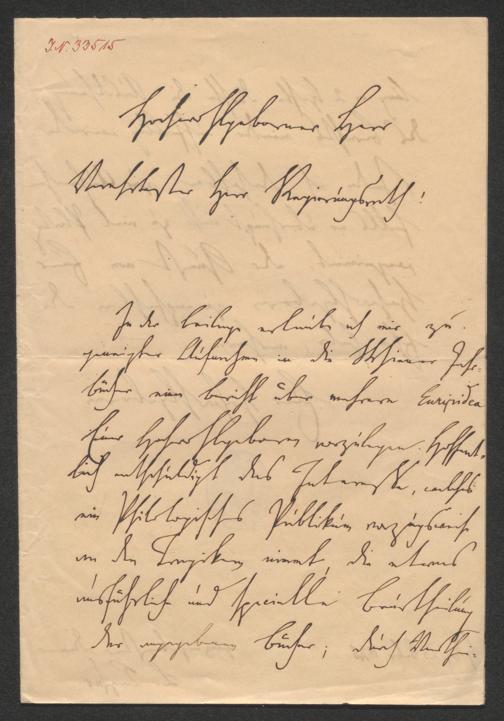 I.N. 33515
Hochwohlgeborner Herr
Verehrtester Herr Regierungsrath!
In der Beilage erlaube ich mir zu
geneigter Aufnahme in die Wiener Jahr-
bücher einen Bericht über mehrere Euripidea
Euer Hochwohlgeboren vorzulegen. Hoffent-
lich entschuldigt das Interesse, welches
ein Philologisches Publikum vorzugsweise
an den Tragikern nimmt, die etwas
ausführliche und specielle Beurtheilung
der angegebenen Bücher;